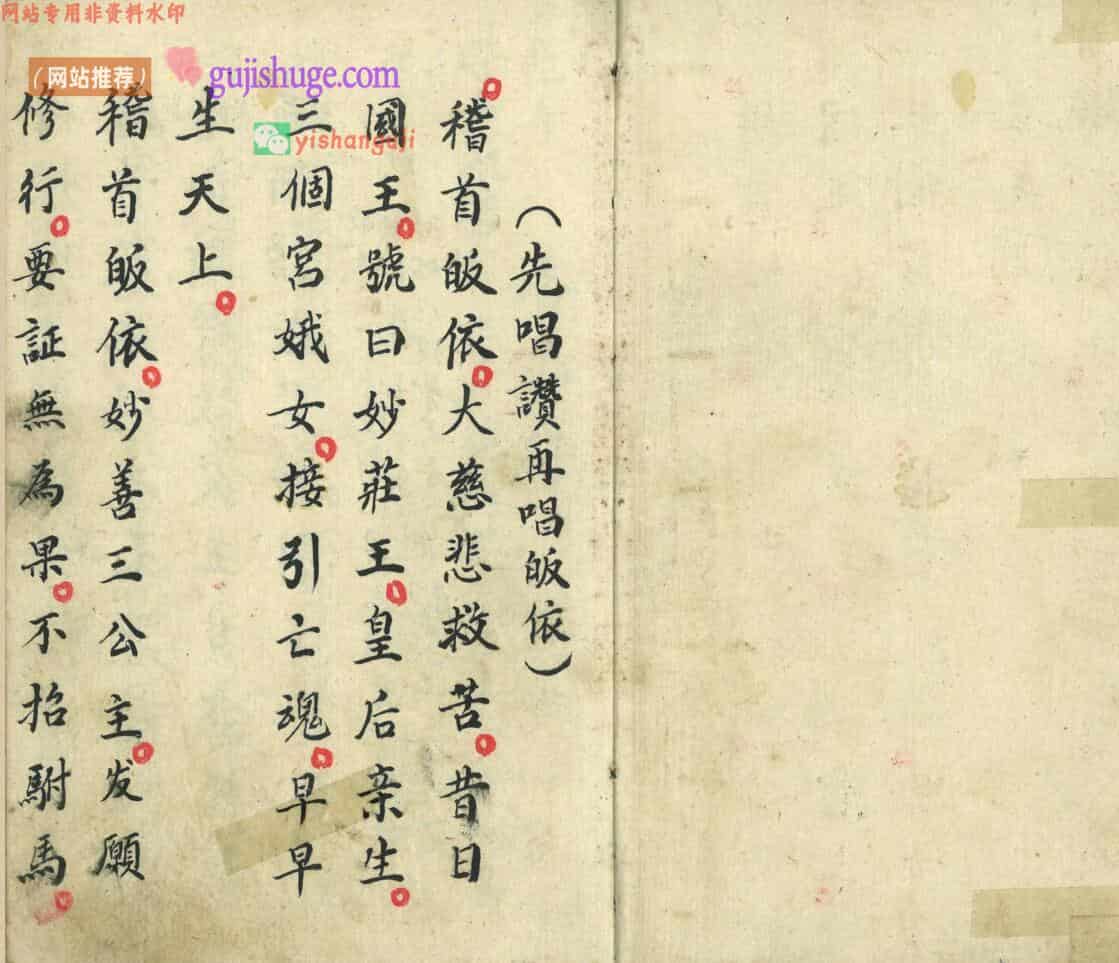 网站专用非资料水印
(网站推荐)
gujishuge.com
yishanguji
(先唱讚再唱皈依)
稽首皈依大慈悲救苦昔日
國王號曰妙莊王皇后亲生
三個宮娥女接引亡魂早早
生天上
稽首皈依妙善三公主发願
修行要証無為果不招駙馬